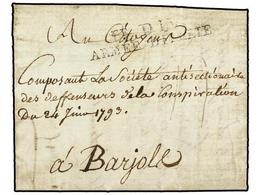 Au Citoyens
ARMÉE D'ITALIE
Composant La Société antisectionaire
des deffenseurs de la Conspiration
Du 24 Juin 1793.
à Barjole